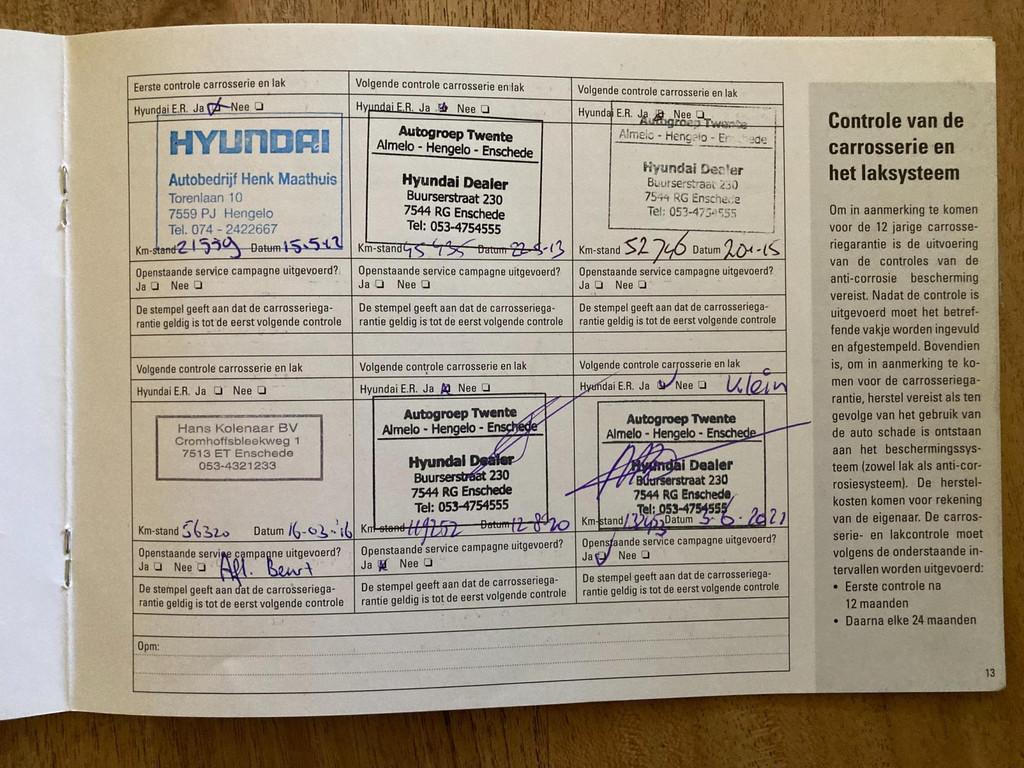 Eerste controle carrosserie en lak
Hyundai E.R. Ja Nee
HYUNDAI
Autobedrijf Henk Maathuis
Torenlaan 10
7559 PJ Hengelo
Tel. 074 - 2422667
Km-stand 21559 Datum 15.5.12
Openstaande service campagne uitgevoerd?
Ja Nee
De stempel geeft aan dat de carrosseriega-
rantie geldig is tot de eerst volgende controle
Volgende controle carrosserie en lak
Hyundai E.R. Ja Nee
Autogroep Twente
Almelo - Hengelo - Enschede
Hyundai Dealer
Buurserstraat 230
7544 RG Enschede
Tel: 053-4754555
Km-stand 45435 Datum 22-5-13
Openstaande service campagne uitgevoerd?
Ja Nee
De stempel geeft aan dat de carrosseriega-
rantie geldig is tot de eerst volgende controle
Volgende controle carrosserie en lak
Hyundai E.R. Ja Nee
Autogroep Twente
Almelo - Hengelo - Enschede
Hyundai Dealer
Buurserstraat 230
7544 RG Enschede
Tel: 053-4754555
Km-stand 52746 Datum
Openstaande service campagne uitgevoerd?
Ja Nee
De stempel geeft aan dat de carrosseriega-
rantie geldig is tot de eerst volgende controle
Volgende controle carrosserie en lak
Hyundai E.R. Ja Nee
Hans Kolenaar BV
Cromhoffsbleekweg 1
7513 ET Enschede
053-4321233
Km-stand 56320 Datum 16-03-'16
Openstaande service campagne uitgevoerd?
Ja Nee Afl. Beurt
De stempel geeft aan dat de carrosseriega-
rantie geldig is tot de eerst volgende controle
Volgende controle carrosserie en lak
Hyundai E.R. Ja Nee
Autogroep Twente
Almelo - Hengelo - Enschede
Hyundai Dealer
Buurserstraat 230
7544 RG Enschede
Tel: 053-4754555
Km-stand 119252 Datum 12-8-20
Openstaande service campagne uitgevoerd?
Ja Nee
De stempel geeft aan dat de carrosseriega-
rantie geldig is tot de eerst volgende controle
Volgende controle carrosserie en lak
Hyundai E.R. Ja Nee Klein
Autogroep Twente
Almelo - Hengelo - Enschede
Hyundai Dealer
Buurserstraat 230
7544 RG Enschede
Tel: 053-4754555
Km-stand Datum 3-6-2021
Openstaande service campagne uitgevoerd?
Ja Nee
De stempel geeft aan dat de carrosseriega-
rantie geldig is tot de eerst volgende controle
Opm:
Controle van de
carrosserie en
het laksysteem
Om in aanmerking te komen
voor de 12 jarige carrosse-
riegarantie is de uitvoering
van de controles van de
anti-corrosie bescherming
vereist. Nadat de controle is
uitgevoerd moet het betref-
fende vakje worden ingevuld
en afgestempeld. Bovendien
is, om in aanmerking te ko-
men voor de carrosseriega-
rantie, herstel vereist als ten
gevolge van het gebruik van
de auto schade is ontstaan
aan het beschermingssys-
teem (zowel lak als anti-cor-
rosiesysteem). De herstel-
kosten komen voor rekening
van de eigenaar. De carros-
serie- en lakcontrole moet
volgens de onderstaande in-
tervallen worden uitgevoerd:
• Eerste controle na
12 maanden
• Daarna elke 24 maanden
13